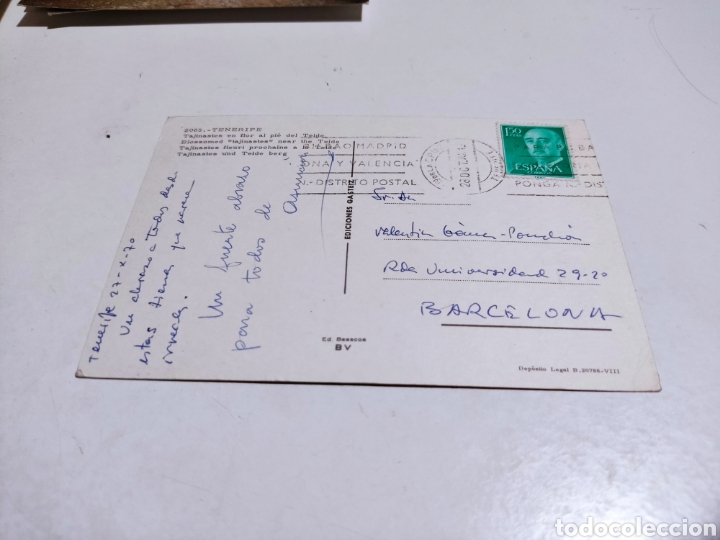 2005.-TENERIFE
Tajinastes en flor al pié del Teide
Blossomed "tajinastes" near the Teide
Tajinastes fleuri prochains a
Tajinastes und Teide berg
MADRID
ONA Y VALENCIA
DISTRITO POSTAL
28 OCT
1'50
ESPAÑA
PONGA
DIS
EDICIONES GASTEIZ
Tenerife 27-X-70
Un abrazo a todos desde
estas tierras que
Un fuerte abrazo
para todos de
Sr. Dn
Valentin Gómez
Rda Universidad 29-2º
BARCELONA
Ed. Bescos
BV
Depósito Legal B. 20766-VIII
todocoleccion